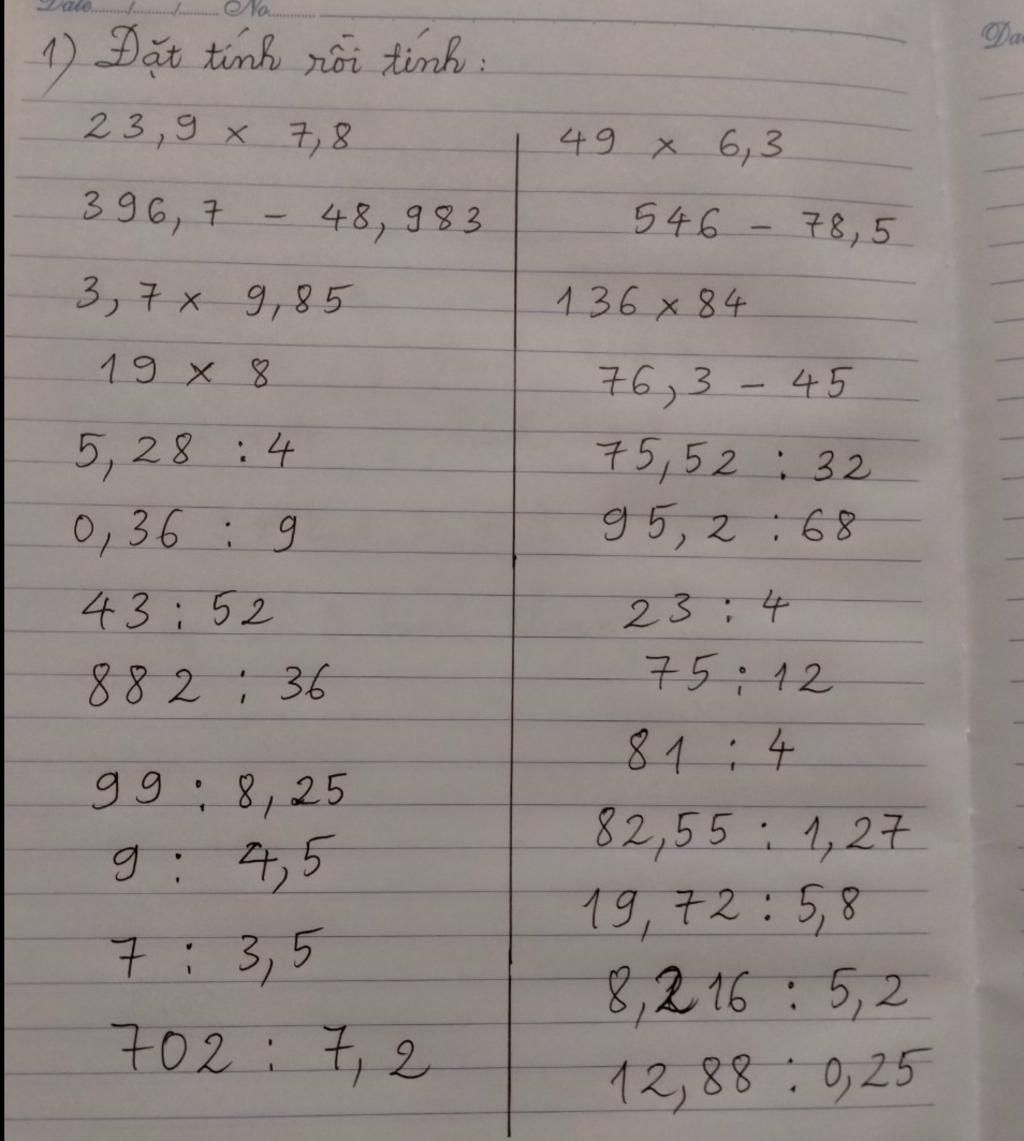 Date / / No
1) Đặt tính rồi tính:
23,9 x 7,8
396,7 - 48,983
3,7 x 9,85
19 x 8
5,28 : 4
0,36 : 9
43 : 52
882 : 36
99 : 8,25
9 : 4,5
7 : 3,5
702 : 7,2
49 x 6,3
546 - 78,5
136 x 84
76,3 - 45
75,52 : 32
95,2 : 68
23 : 4
75 : 12
81 : 4
82,55 : 1,27
19,72 : 5,8
8,216 : 5,2
12,88 : 0,25